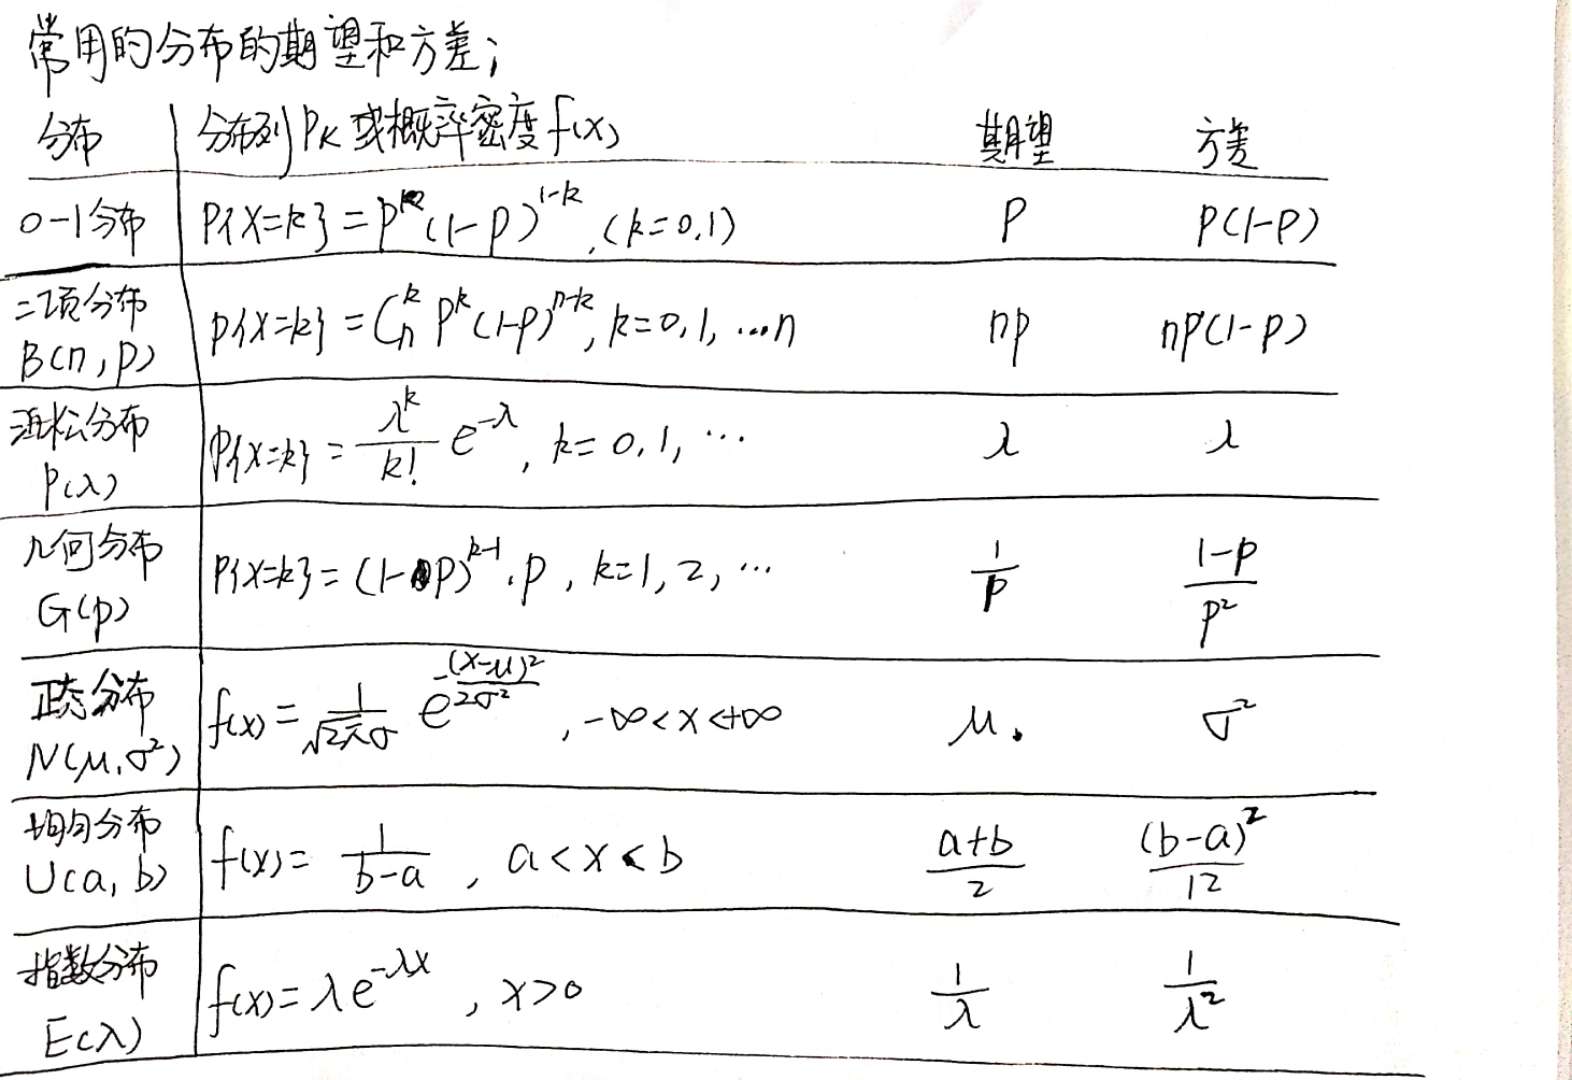 常用的分布的期望和方差;
分布 分布列Pk或概率密度f(x) 期望 方差
0-1分布 P{X=k}=p^k(1-p)^{1-k},(k=0,1) P P(1-P)
二项分布 B(n,p) P{X=k}=C_n^k P^k(1-P)^{n-k}, k=0,1,…n np np(1-p)
泊松分布 P(λ) P{X=k}=\frac{λ^k}{k!} e^{-λ}, k=0,1,… λ λ
几何分布 G(p) P{X=k}=(1-p)^{k-1}·p, k=1,2,… \frac{1}{p} \frac{1-p}{p^2}
正态分布 N(μ,σ²) f(x)=\frac{1}{\sqrt{2π}σ} e^{-\frac{(x-μ)^2}{2σ^2}}, -∞<x<+∞ μ. σ²
均匀分布 U(a,b) f(x)=\frac{1}{b-a}, a<x<b \frac{a+b}{2} \frac{(b-a)^2}{12}
指数分布 E(λ) f(x)=λe^{-λx}, x>0 \frac{1}{λ} \frac{1}{λ^2}